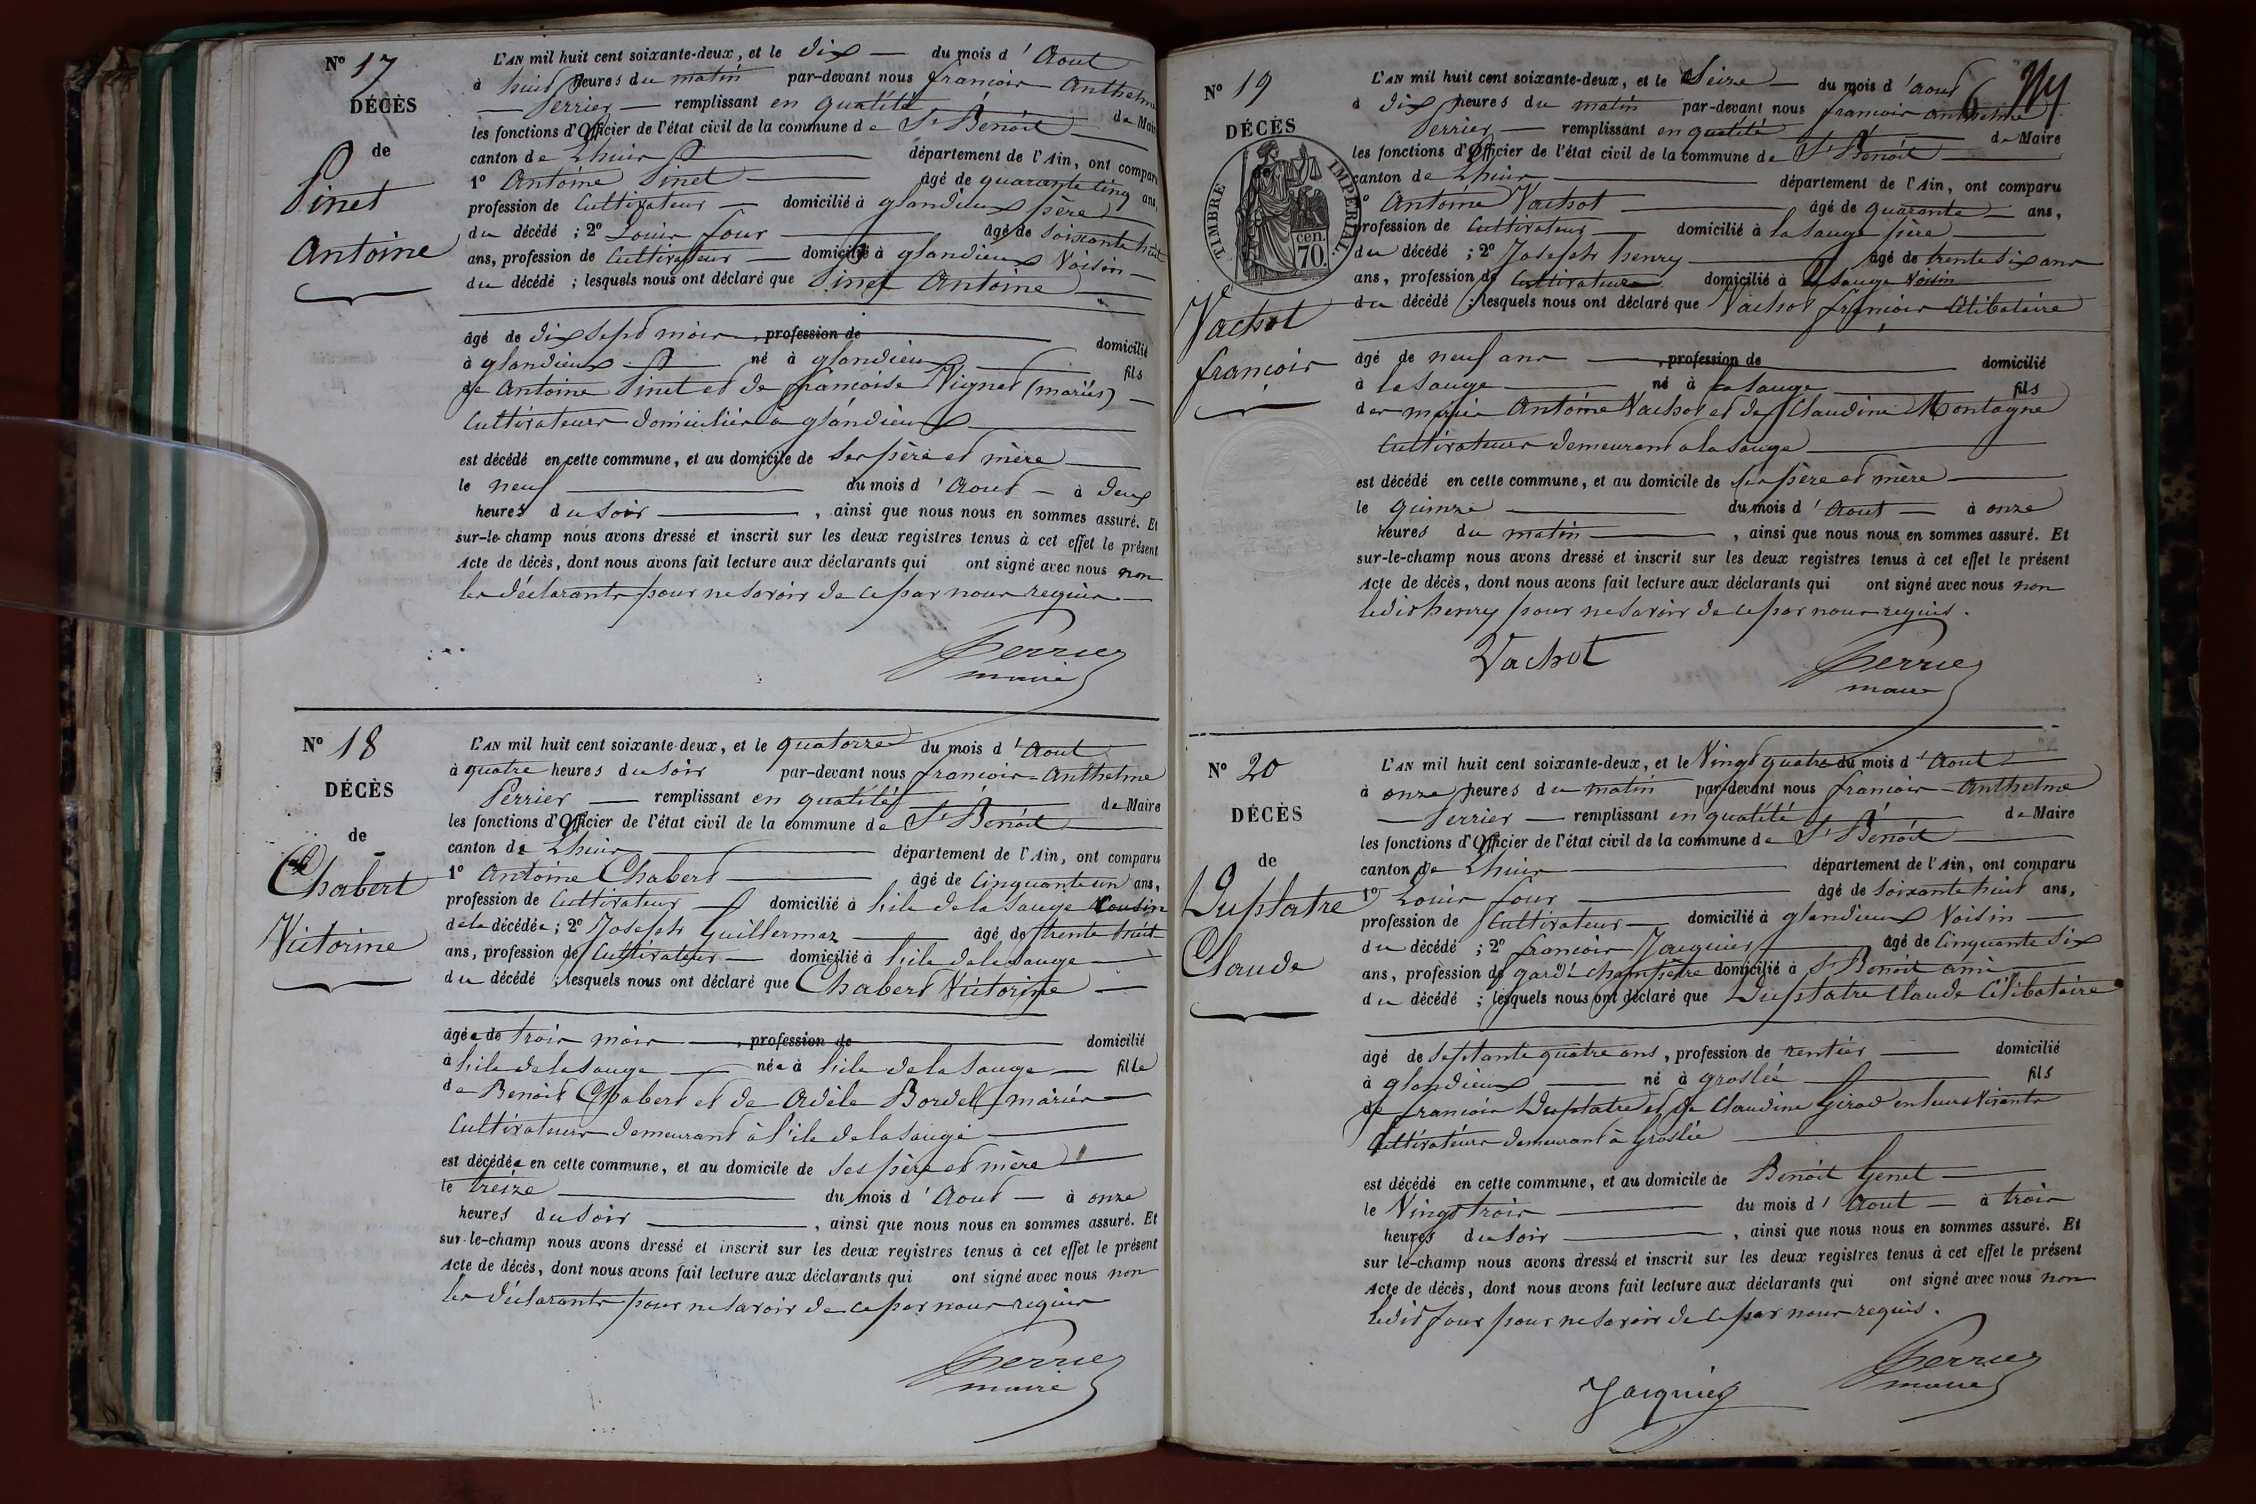 N° 17
DÉCÈS
de
Pinet
Antoine
L'AN mil huit cent soixante-deux, et le dix du mois d'Aout
à huit heures du matin par-devant nous françois Anthelme
Perrier remplissant en qualité de Maire
les fonctions d'Officier de l'état civil de la commune de St Benoit
canton de Lhuis département de l'Ain, ont comparu
1° Antoine Pinet âgé de quarante cinq ans,
profession de Cultivateur domicilié à glandieux père
du décédé ; 2° Louis four âgé de Soixante huit
ans, profession de Cultivateur domicilié à glandieux Voisin
du décédé ; lesquels nous ont déclaré que Pinet Antoine
âgé de dix sept mois , profession de domicilié
à glandieux né à glandieux fils
de Antoine Pinet et de françoise Vignet (mariés)
Cultivateurs domiciliés à glandieux
est décédé en cette commune, et au domicile de Ses père et mère
le neuf du mois d'Aout à deux
heures du Soir , ainsi que nous nous en sommes assuré. Et
sur-le-champ nous avons dressé et inscrit sur les deux registres tenus à cet effet le présent
Acte de décès, dont nous avons fait lecture aux déclarants qui ont signé avec nous non
les déclarants pour ne savoir de ce par nous requis
Perrier
maire
N° 18
DÉCÈS
de
Chabert
Victorine
L'AN mil huit cent soixante-deux, et le quatorze du mois d'Aout
à quatre heures du Soir par-devant nous françois-Anthelme
Perrier remplissant en qualité de Maire
les fonctions d'Officier de l'état civil de la commune de St Benoit
canton de Lhuis département de l'Ain, ont comparu
1° Antoine Chabert âgé de Cinquante un ans,
profession de Cultivateur domicilié à l'ile de la Sauge Cousin
de la décédée ; 2° Joseph Guillermaz âgé de trente huit
ans, profession de Cultivateur domicilié à l'ile de la Sauge
du décédé ; lesquels nous ont déclaré que Chabert Victorine
âgée de trois mois , profession de domicilié
à l'ile de la Sauge née à l'ile de la Sauge fille
de Benoit Chabert et de Adèle Bordel mariés
Cultivateurs demeurant à l'ile de la Sauge
est décédée en cette commune, et au domicile de Ses père et mère
le treize du mois d'Aout à onze
heures du Soir , ainsi que nous nous en sommes assuré. Et
sur-le-champ nous avons dressé et inscrit sur les deux registres tenus à cet effet le présent
Acte de décès, dont nous avons fait lecture aux déclarants qui ont signé avec nous non
les déclarants pour ne savoir de ce par nous requis
Perrier
maire
6
N° 19
DÉCÈS
TIMBRE IMPÉRIAL
70 cen.
Vachot
françois
L'AN mil huit cent soixante-deux, et le Seize du mois d'Aout
à dix heures du matin par-devant nous françois anthelme
Perrier remplissant en qualité de Maire
les fonctions d'Officier de l'état civil de la commune de St Benoit
canton de Lhuis département de l'Ain, ont comparu
1° Antoine Vachot âgé de quarante ans,
profession de Cultivateur domicilié à la Sauge père
du décédé ; 2° Joseph henry âgé de trente Six ans
ans, profession de Cultivateur domicilié à la Sauge Voisin
du décédé ; lesquels nous ont déclaré que Vachot françois Célibataire
âgé de neuf ans , profession de domicilié
à la Sauge né à la Sauge fils
des mariés Antoine Vachot et de Claudine Montagne
Cultivateurs demeurant à la Sauge
est décédé en cette commune, et au domicile de ses père et mère
le quinze du mois d'Aout à onze
heures du matin , ainsi que nous nous en sommes assuré. Et
sur-le-champ nous avons dressé et inscrit sur les deux registres tenus à cet effet le présent
Acte de décès, dont nous avons fait lecture aux déclarants qui ont signé avec nous non
ledit henry pour ne savoir de ce par nous requis.
Vachot Perrier
maire
N° 20
DÉCÈS
de
Duplatre
Claude
L'AN mil huit cent soixante-deux, et le Vingt quatre du mois d'Aout
à onze heures du matin par-devant nous françois-Anthelme
Perrier remplissant en qualité de Maire
les fonctions d'Officier de l'état civil de la commune de St Benoit
canton de Lhuis département de l'Ain, ont comparu
1° Louis four âgé de Soixante huit ans,
profession de Cultivateur domicilié à glandieux Voisin
du décédé ; 2° françois Jacquier âgé de Cinquante Six
ans, profession de garde champêtre domicilié à St Benoit ami
du décédé ; lesquels nous ont déclaré que Duplatre Claude Célibataire
âgé de Septante quatre ans, profession de rentier domicilié
à glandieux né à groslée fils
de françois Duplatre et de Claudine Girod en leurs Vivants
Cultivateurs demeurant à Groslée
est décédé en cette commune, et au domicile de Benoit Genet
le Vingt trois du mois d'Aout à trois
heures du Soir , ainsi que nous nous en sommes assuré. Et
sur le-champ nous avons dressé et inscrit sur les deux registres tenus à cet effet le présent
Acte de décès, dont nous avons fait lecture aux déclarants qui ont signé avec nous non
ledit four pour ne savoir de ce par nous requis.
Jacquier Perrier
maire